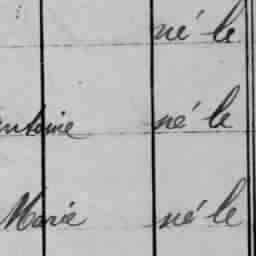 né le
ntoine né le
Marie né le